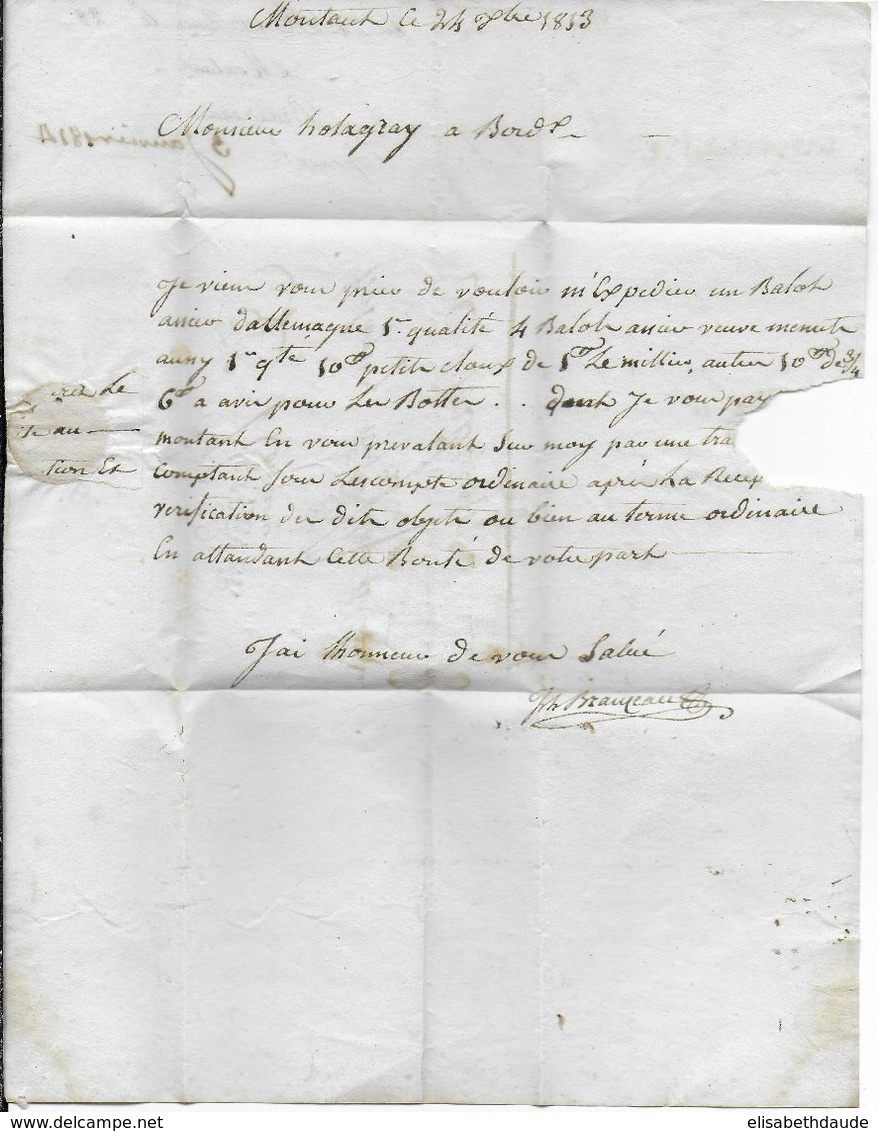 Montaut ce 24 Xbre 1813
Monsieur holagray a Bord.x
Je viens vous prier de vouloir m'Expedier un Balot
assier dallemagne 1r. qualité 4 Balots assier veuve menute
aussy 1r qté 10# petits cloux de 1# Le millier, autres 10# de 3/4
6# a avis pour Les Bottes . . dont Je vous pay
montant En vous prevalant Sur moy par une tra
comptant sous Lescompte ordinaire après La Recep
verification des dits objets ou bien au terme ordinaire
En attandant Cette Bonté de votre part
erez Le
te au
tion Et
Jai Lhonneur de vous Salué
3 Janvier 1814
elisabethdaude